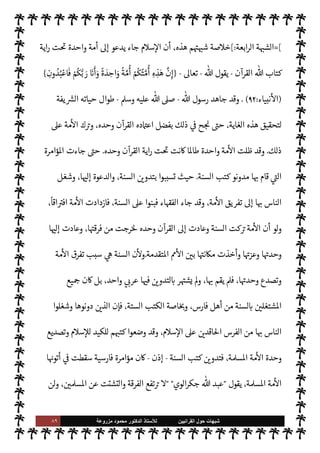 ]=الشبهة الرابعة:[خلاصة شبهتهم هذه، أن الإسلام جاء يدعو إلى أمة واحدة تحت راية
كتاب الله القرآن - يقول الله - تعالى - {إِنَّ هَذِهِ أُمَّتُكُمْ أُمَّةً وَاحِدَةً وَأَنَا رَبُّكُمْ فَاعْبُدُونِ}
(الأنبياء:٩٢) . وقد جاهد رسول الله - صلى الله عليه وسلم - طوال حياته الشريفة
لتحقيق هذه الغاية، حتى نجح في ذلك بفضل اعتماده القرآن وحده، وترك الأمة على
ذلك. وقد ظلت الأمة واحدة طالما كانت تحت راية القرآن وحده. حتى جاءت المؤامرة
التي قام بها مدونو كتب السنة. حيث تسببوا بتدوين السنة، والدعوة إليها، وشغل
الناس بها إلى تفريق الأمة، وقد جاء الفقهاء فبنوا على السنة، فازدادت الأمة افتراقاً،
ولو أن الأمة تركت السنة وعادت إلى القرآن وحده لخرجت من فرقتها، وعادت إليها
وحدتها وعزتها وأخذت مكانتها بين الأمم المتقدمة.ولأن السنة هي سبب تفرق الأمة
وتصدع وحدتها، فلم يقم بها، ولم يشتهر بالتدوين فيها عربي واحد، بل كان جميع
المشتغلين بالسنة من أهل فارس، وبخاصة الكتب الستة، فإن الذين دونوها وشغلوا
الناس بها من الفرس الحاقدين على الإسلام، وقد وضعوا كتبهم للكيد للإسلام وتصديع
وحدة الأمة المسلمة، فتدوين كتب السنة - إذن - كان مؤامرة فارسية سقطت في أتونها
الأمة المسلمة، يقول "عبد الله جكرالوي" "لا ترتفع الفرقة والتشتت عن المسلمين، ولن
شبهات حول القرآنيين للأستاذ الدكتور محمود مزروعة ٨٩